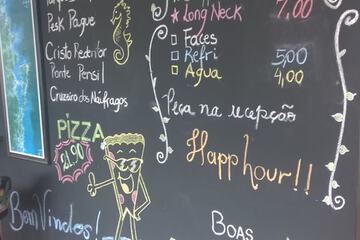 Pesk Pague
Cristo Redentor
Ponte Pensil
Cruzeiro dos Náufragos
PIZZA
21,90
Bem Vindos!
★ Long Neck 7,00
Faces
Refri 5,00
Água 4,00
Peça na recepção
Happ hour!!
BOAS